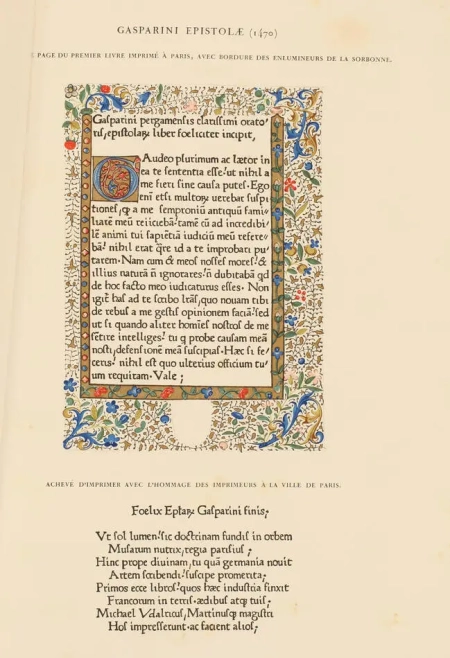 GASPARINI EPISTOLÆ (1470)
PAGE DU PREMIER LIVRE IMPRIMÉ À PARIS, AVEC BORDURE DES ENLUMINEURS DE LA SORBONNE.
Gasparini pergamensis clarissimi orato
ris, epistolaꝝ liber foeliciter incipit,
GAudeo plurimum ac lætor in
ea te sententia esse, ut nihil a
me fieri sine causa putes. Ego
enī etsi multoꝝ uerebar suspi
tiones, ꝙ a me semproniū antiquū fami
liarē meū reiiciebā, tamē cū ad incredibi
lē animi tui sapiētiā iudiciū meū refere
bā, nihil erat ꝗre id a te improbari pu
tarem. Nam cum & meos nosses mores, &
illius naturā nō ignorares, nō dubitabā ꝗd
de hoc facto meo iudicaturus esses. Non
igit̄ has ad te scribo lrās, quo nouam tibi
de rebus a me gestis opinionem faciā, sed
ut si quando aliter homīes nostros de me
sētire intelliges, tu ꝗ probe causam meā
nosti, defensionē meā suscipias. Hæc si fe
ceris, nihil est quo ulterius officium tu
um requiram. Vale;
ACHEVÉ D'IMPRIMER AVEC L'HOMMAGE DES IMPRIMEURS À LA VILLE DE PARIS.
Foelix Epłaꝝ Gasparini finis;
Vt sol lumen, sic doctrinam fundis in orbem
Musarum nutrix, regia parisius;
Hinc prope diuinam, tu quā germania nouit
Artem scribendi, suscipe promerita;
Primos ecce libros, quos hæc industria finxit
Francorum in terris, ædibus atꝗ tuis;
Michael Vdalricus, Martinusꝗ magistri
Hos impresserunt, ac facient alios;